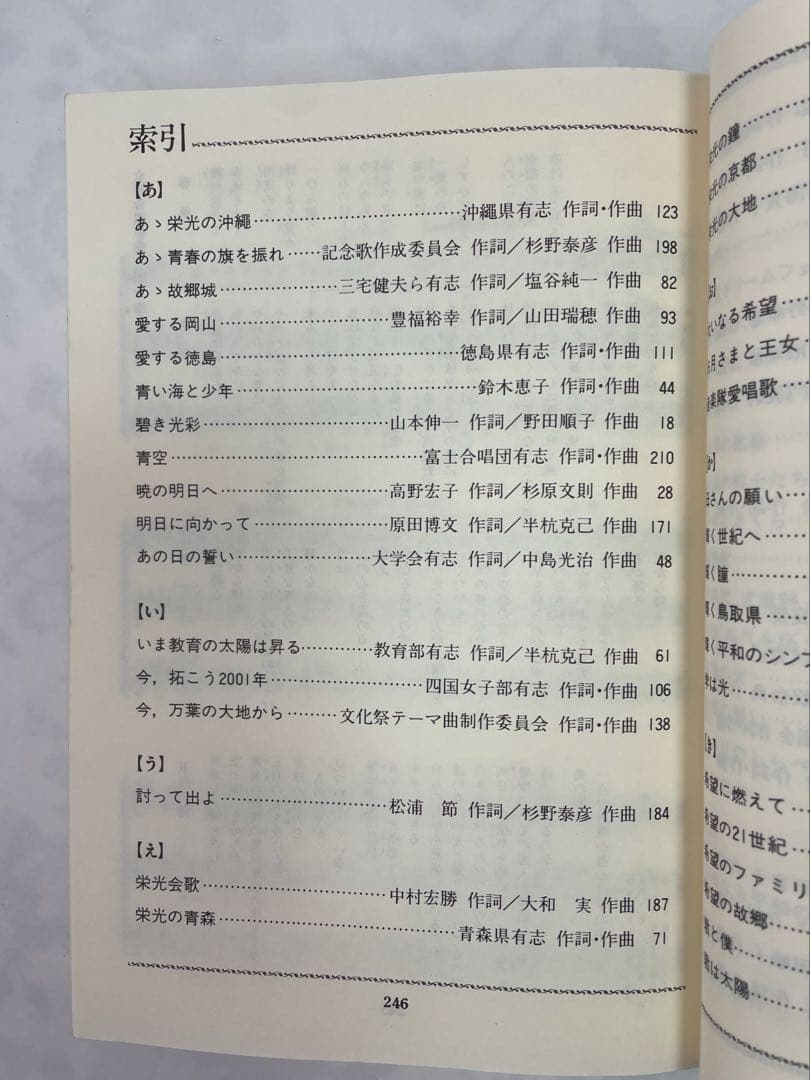 索引
【あ】
あゝ栄光の沖縄……沖縄県有志 作詞・作曲 123
あゝ青春の旗を振れ……記念歌作成委員会 作詞／杉野泰彦 作曲 198
あゝ故郷城……三宅健夫ら有志 作詞／塩谷純一 作曲 82
愛する岡山……豊福裕幸 作詞／山田瑞穂 作曲 93
愛する徳島……徳島県有志 作詞・作曲 111
青い海と少年……鈴木恵子 作詞・作曲 44
碧き光彩……山本伸一 作詞／野田順子 作曲 18
青空……富士合唱団有志 作詞・作曲 210
暁の明日へ……高野宏子 作詞／杉原文則 作曲 28
明日に向かって……原田博文 作詞／半杭克己 作曲 171
あの日の誓い……大学会有志 作詞／中島光治 作曲 48
【い】
いま教育の太陽は昇る……教育部有志 作詞／半杭克己 作曲 61
今，拓こう2001年……四国女子部有志 作詞・作曲 106
今，万葉の大地から……文化祭テーマ曲制作委員会 作詞・作曲 138
【う】
討って出よ……松浦　節 作詞／杉野泰彦 作曲 184
【え】
栄光会歌……中村宏勝 作詞／大和　実 作曲 187
栄光の青森……青森県有志 作詞・作曲 71
246
光の鐘……
光の京都……
光の大地……
いなる希望……
月さまと王女……
楽隊愛唱歌……
さんの願い……
く世紀へ……
く瞳……
く鳥取県……
く平和のシンフ
は光……
【き】
希望に燃えて……
希望の21世紀……
希望のファミリ
希望の故郷……
君と僕……
君は太陽……